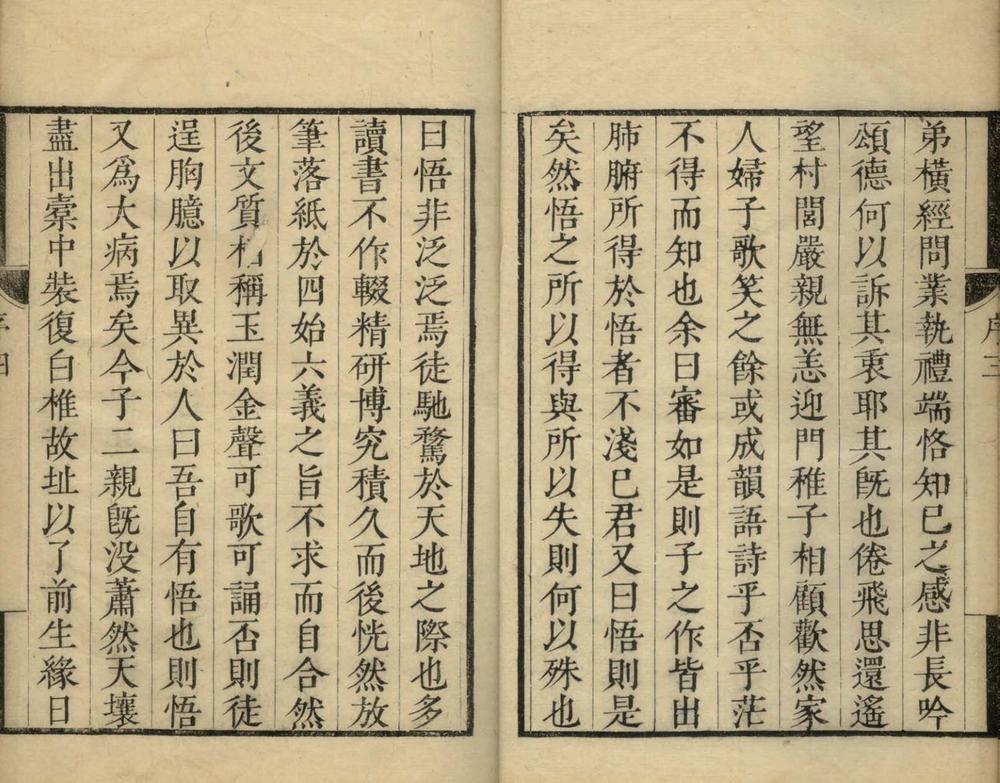 弟橫經問業執禮端恪知已之感非長吟
頌德何以訴其衷耶其旣也倦飛思還遙
望村閭嚴親無恙迎門稚子相顧歡然家
人婦子歌笑之餘或成韻語詩乎否乎茫
不得而知也余曰審如是則子之作皆出
肺腑所得於悟者不淺已君又曰悟則是
矣然悟之所以得與所以失則何以殊也
序三
曰悟非泛泛焉徒馳騖於天地之際也多
讀書不作輟精研博究積久而後恍然放
筆落紙於四始六義之旨不求而自合然
後文質相稱玉潤金聲可歌可誦否則徒
逞胸臆以取異於人曰吾自有悟也則悟
又爲大病焉矣今子二親旣没蕭然天壤
盡出橐中裝復白椎故址以了前生緣日